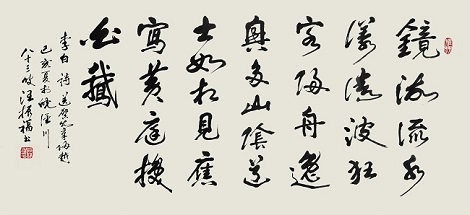 鏡湖流水
漾清波狂
客歸舟逸
興多山陰道
士如相見應
寫黄庭換
白鵝
李白詩送賀賓客歸越
己亥夏於川
八十三叟汪振福书